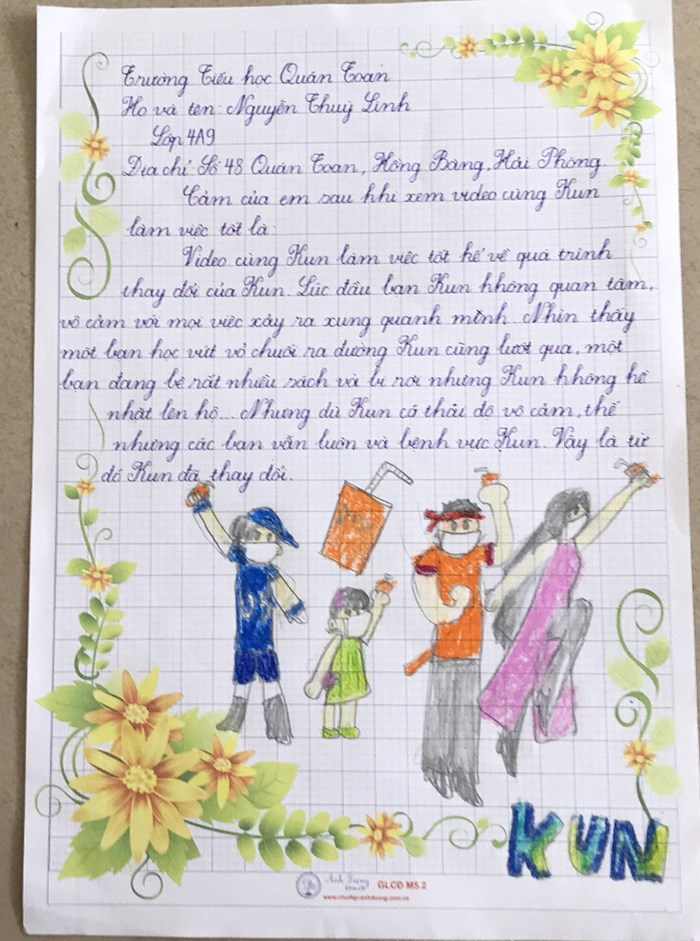 Trường Tiểu học Quán Toan
Họ và tên: Nguyễn Thuỳ Linh
Lớp 4A9
Địa chỉ Số 48 Quán Toan, Hồng Bàng, Hải Phòng.
Cảm của em sau khi xem video cùng Kun
làm việc tốt là:
Video cùng Kun làm việc tốt kể về quá trình
thay đổi của Kun. Lúc đầu bạn Kun không quan tâm,
vô cảm với mọi việc xảy ra xung quanh mình. Nhìn thấy
một bạn học vứt vỏ chuối ra đường Kun cũng lướt qua, một
bạn đang bê rất nhiều sách và bị rơi nhưng Kun không hề
nhặt lên hộ... Nhưng dù Kun có thái độ vô cảm, thế
nhưng các bạn vẫn luôn và bênh vực Kun. Vậy là từ
đó Kun đã thay đổi.
KUN
Ánh Dương
GLCD M5.2
www.chudep-anhduong.com.vn